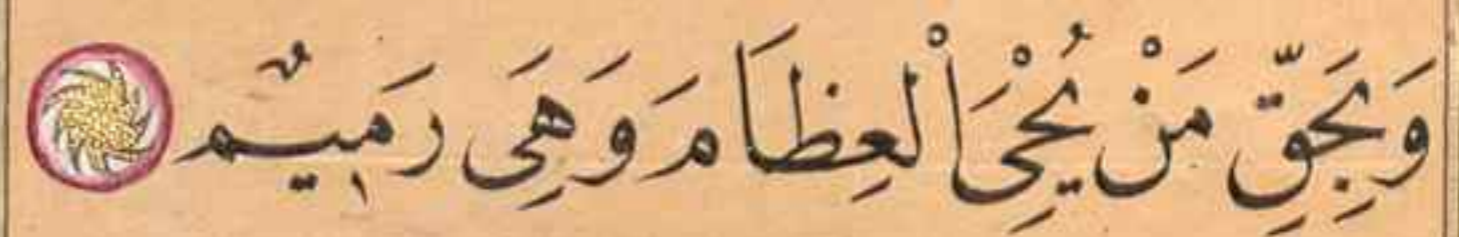 وَبِحَقِّ مَنْ يُحْيِ الْعِظَامَ وَهِيَ رَمِيمٌ